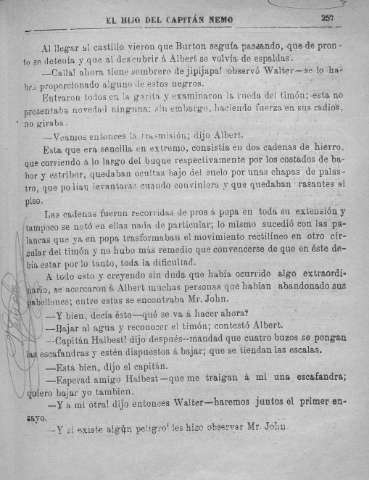 EL HIJO DEL CAPITÁN NEMO 257
Al llegar al castillo vieron que Burton seguía paseando, que de pron-
to se detenía y que al descubrir á Albert se volvía de espaldas.
—Calla! ahora tiene sombrero de jipijapa! observó Walter—se lo ha-
brá proporcionado alguno de estos negros.
Entraron todos en la garita y examinaron la rueda del timón; esta no
presentaba novedad ninguna: sin embargo, haciendo fuerza en sus radios,
no giraba.
—Veamos entonces la trasmisión; dijo Albert.
Esta que era sencilla en extremo, consistía en dos cadenas de hierro,
que corriendo á lo largo del buque respectivamente por los costados de ba-
bor y estribor, quedaban ocultas bajo del suelo por unas chapas de palas-
tro, que podian levantarse cuando conviniera y que quedaban rasantes al
piso.
Las cadenas fueron recorridas de proa á popa en toda su extensión y
tampoco se notó en ellas nada de particular; lo mismo sucedió con las pa-
lancas que ya en popa trasformaban el movimiento rectilíneo en otro cir-
cular del timón y no hubo más remedio que convencerse de que en éste de-
bía estar por lo tanto, toda la dificultad.
A todo esto y creyendo sin duda que había ocurrido algo extraordi-
nario, se acercaron á Albert muchas personas que habían abandonado sus
pabellones; entre estas se encontraba Mr. John.
—Y bien, decía éste—qué se va á hacer ahora?
—Bajar al agua y reconocer el timón; contestó Albert.
—Capitán Halbest! dijo después—mandad que cuatro buzos se pongan
las escafandras y estén dispuestos á bajar; que se tiendan las escalas.
—Está bien, dijo el capitán.
—Esperad amigo Halbest—que me traigan á mí una escafandra;
quiero bajar yo tambien.
—Y a mí otra! dijo entonces Walter—haremos juntos el primer en-
sayo.
—Y si existe algún peligro! les hizo observar Mr. John.